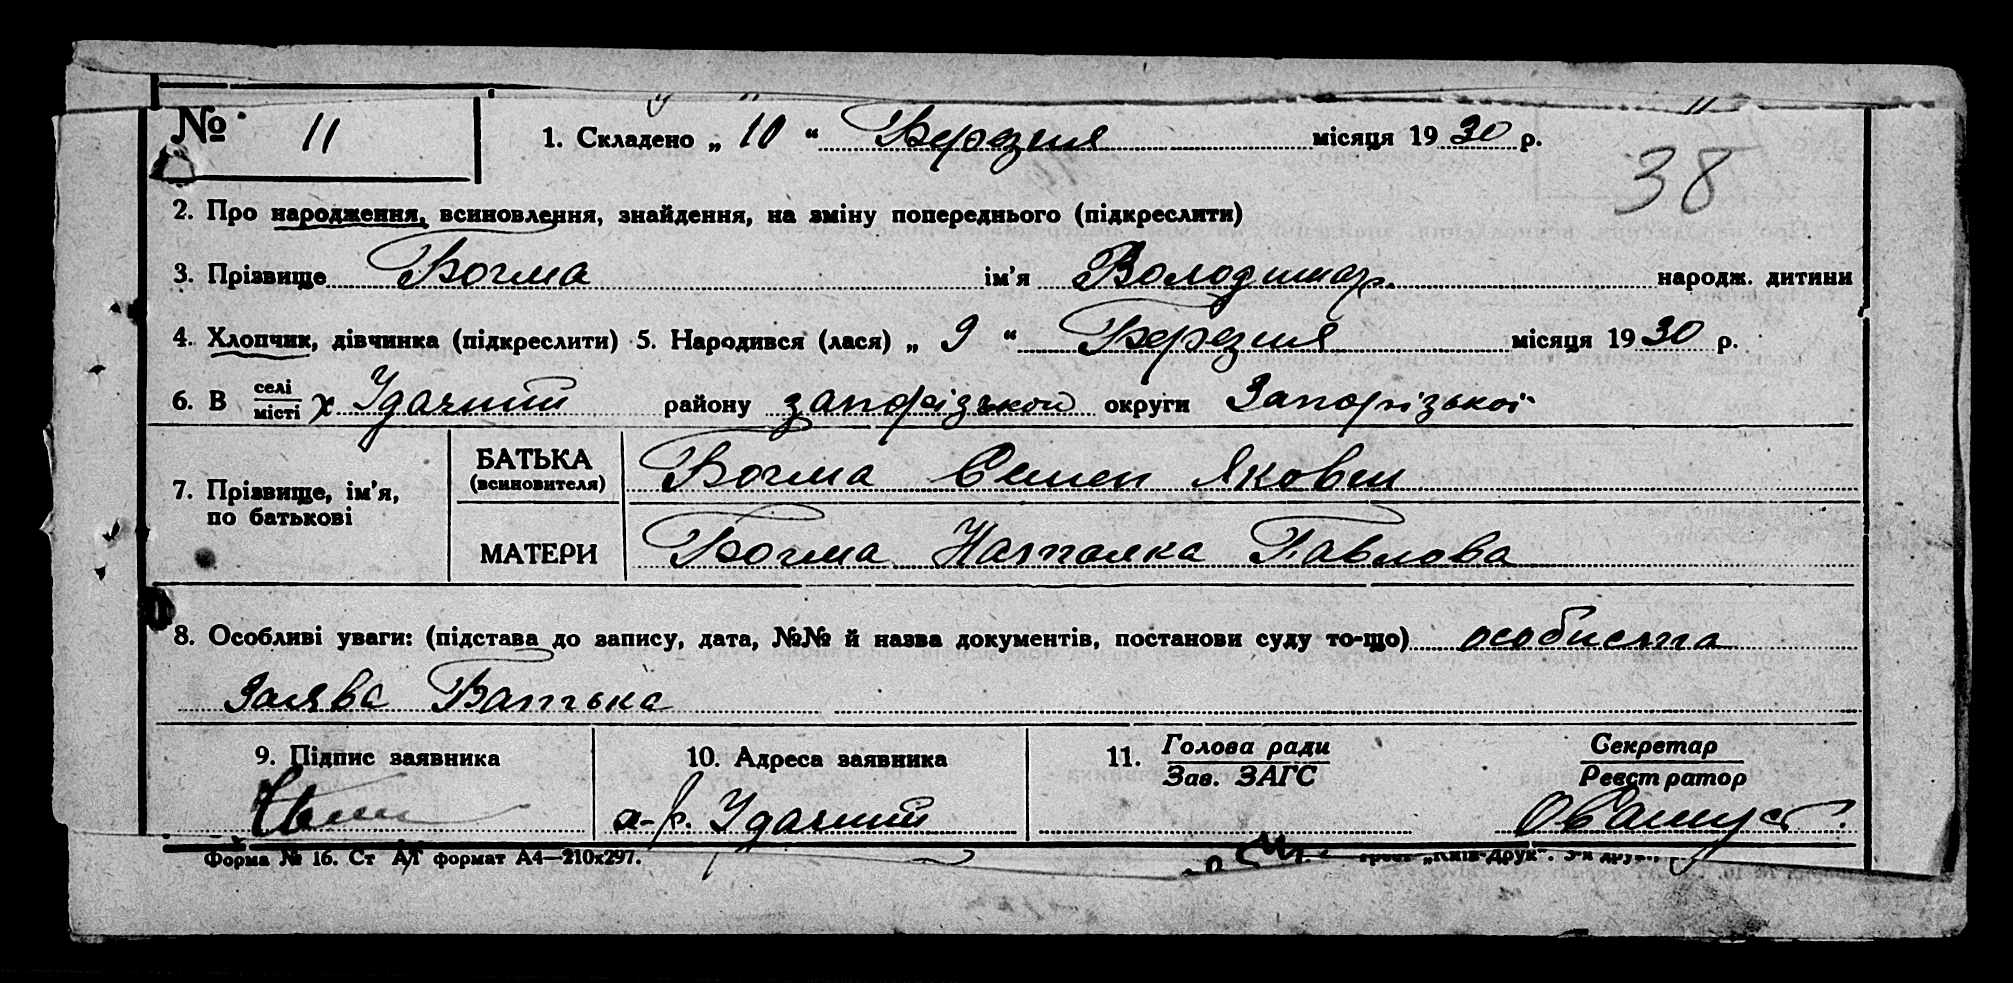 № 11
1. Складено „ 10 “ Березня місяця 19 30 р.
38
2. Про народження, всиновлення, знайдення, на зміну попереднього (підкреслити)
3. Прізвище Богма ім’я Володимир народж. дитини
4. Хлопчик, дівчинка (підкреслити) 5. Народився (лася) „ 9 “ Березня місяця 19 30 р.
6. В селі/місті х Удачний району запорізької округи Запорізької
7. Прізвище, ім’я, по батькові
БАТЬКА (всиновителя) Богма Семен Яковл
МАТЕРИ Богма Наталка Павлова
8. Особливі уваги: (підстава до запису, дата, №№ й назва документів, постанови суду то-що) особиста
Заява Батька
9. Підпис заявника
10. Адреса заявника
11. Голова ради / Зав. ЗАГС
Секретар / Реєстратор
Удачний
Форма № 16. Ст формат А4—210х297.
„Київ-Друк“.